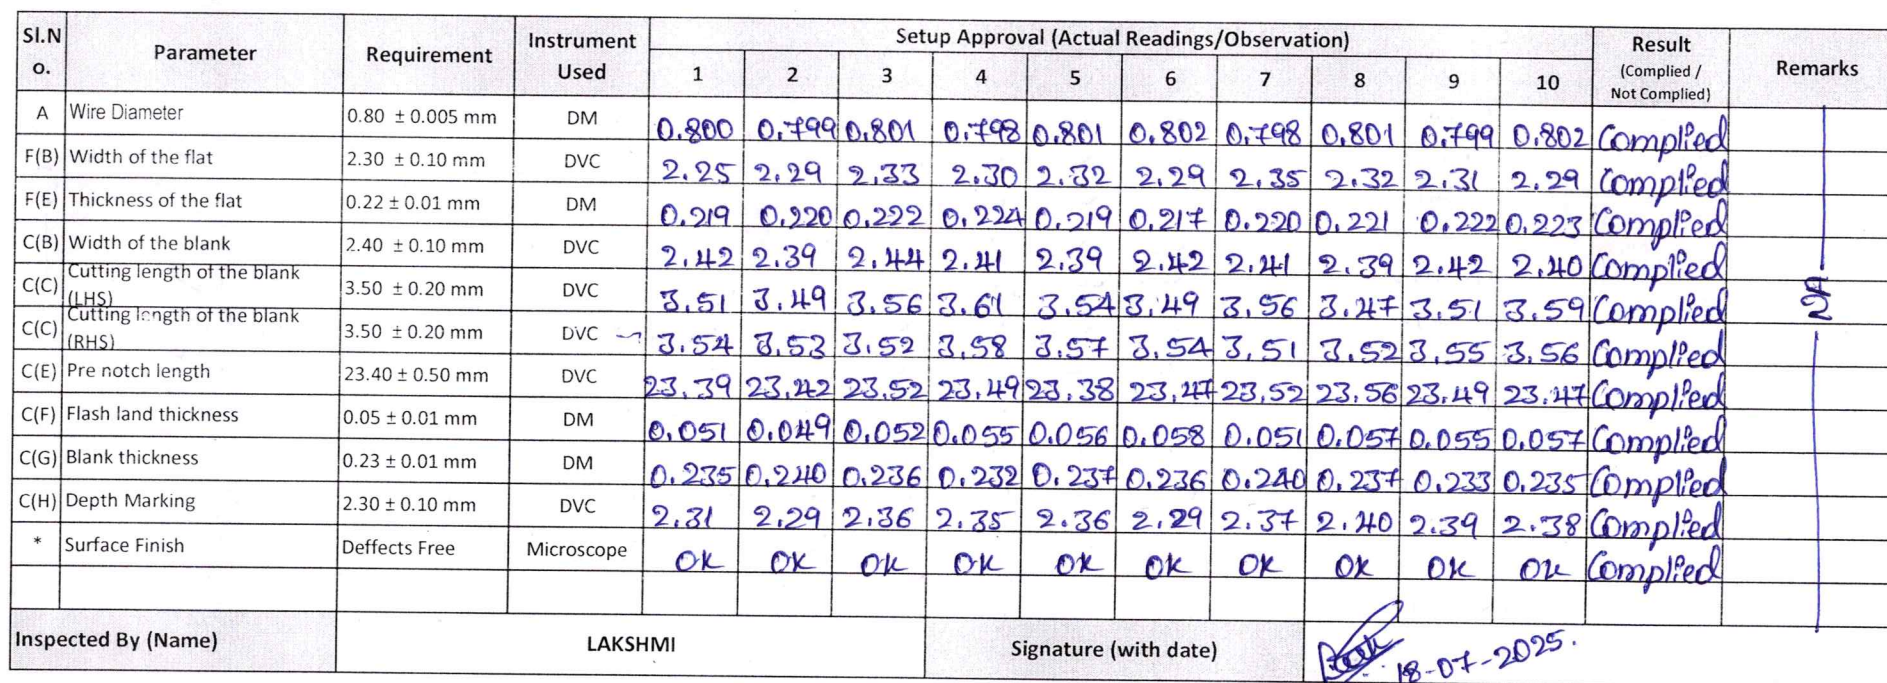 Sl.No. Parameter Requirement Instrument Used Setup Approval (Actual Readings/Observation) Result (Complied / Not Complied) Remarks
1 2 3 4 5 6 7 8 9 10
A Wire Diameter 0.80 ± 0.005 mm DM 0.800 0.799 0.801 0.798 0.801 0.802 0.798 0.801 0.799 0.802 Complied
F(B) Width of the flat 2.30 ± 0.10 mm DVC 2.25 2.29 2.33 2.30 2.32 2.29 2.35 2.32 2.31 2.29 Complied
F(E) Thickness of the flat 0.22 ± 0.01 mm DM 0.219 0.220 0.222 0.224 0.219 0.217 0.220 0.221 0.222 0.223 Complied
C(B) Width of the blank 2.40 ± 0.10 mm DVC 2.42 2.39 2.44 2.41 2.39 2.42 2.41 2.39 2.42 2.40 Complied
C(C) Cutting length of the blank (LHS) 3.50 ± 0.20 mm DVC 3.51 3.49 3.56 3.61 3.54 3.49 3.56 3.47 3.51 3.59 Complied
C(C) Cutting length of the blank (RHS) 3.50 ± 0.20 mm DVC 3.54 3.53 3.52 3.58 3.57 3.54 3.51 3.52 3.55 3.56 Complied
C(E) Pre notch length 23.40 ± 0.50 mm DVC 23.39 23.42 23.52 23.49 23.38 23.47 23.52 23.56 23.49 23.47 Complied
C(F) Flash land thickness 0.05 ± 0.01 mm DM 0.051 0.049 0.052 0.055 0.056 0.058 0.051 0.057 0.055 0.057 Complied
C(G) Blank thickness 0.23 ± 0.01 mm DM 0.235 0.240 0.236 0.232 0.237 0.236 0.240 0.237 0.233 0.235 Complied
C(H) Depth Marking 2.30 ± 0.10 mm DVC 2.31 2.29 2.36 2.35 2.36 2.29 2.37 2.40 2.39 2.38 Complied
* Surface Finish Deffects Free Microscope OK OK OK OK OK OK OK OK OK OK Complied
Inspected By (Name) LAKSHMI Signature (with date) 18-07-2025.